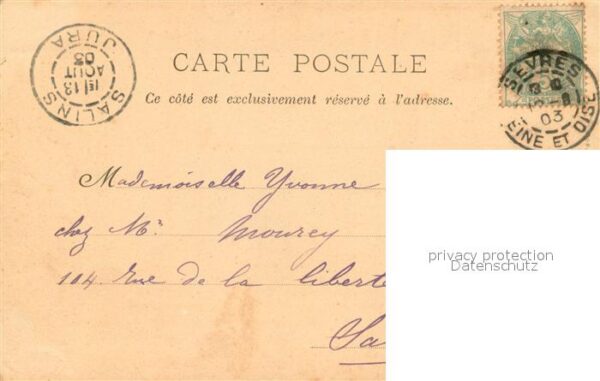 SALINS
13
AOUT
03
JURA
CARTE POSTALE
Ce côté est exclusivement réservé à l'adresse.
SEVRES
03
EINE ET OISE
Mademoiselle Yvonne
chez Mr. Mourey
104 Rue de la liberte
Sa
privacy protection
Datenschutz